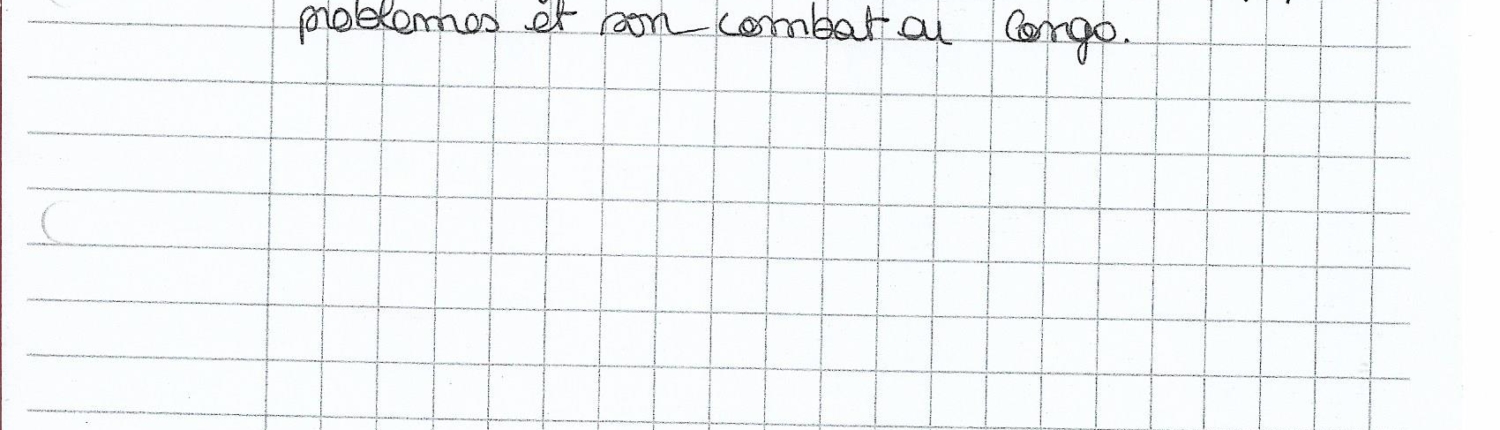 problemes et son combat au Congo.